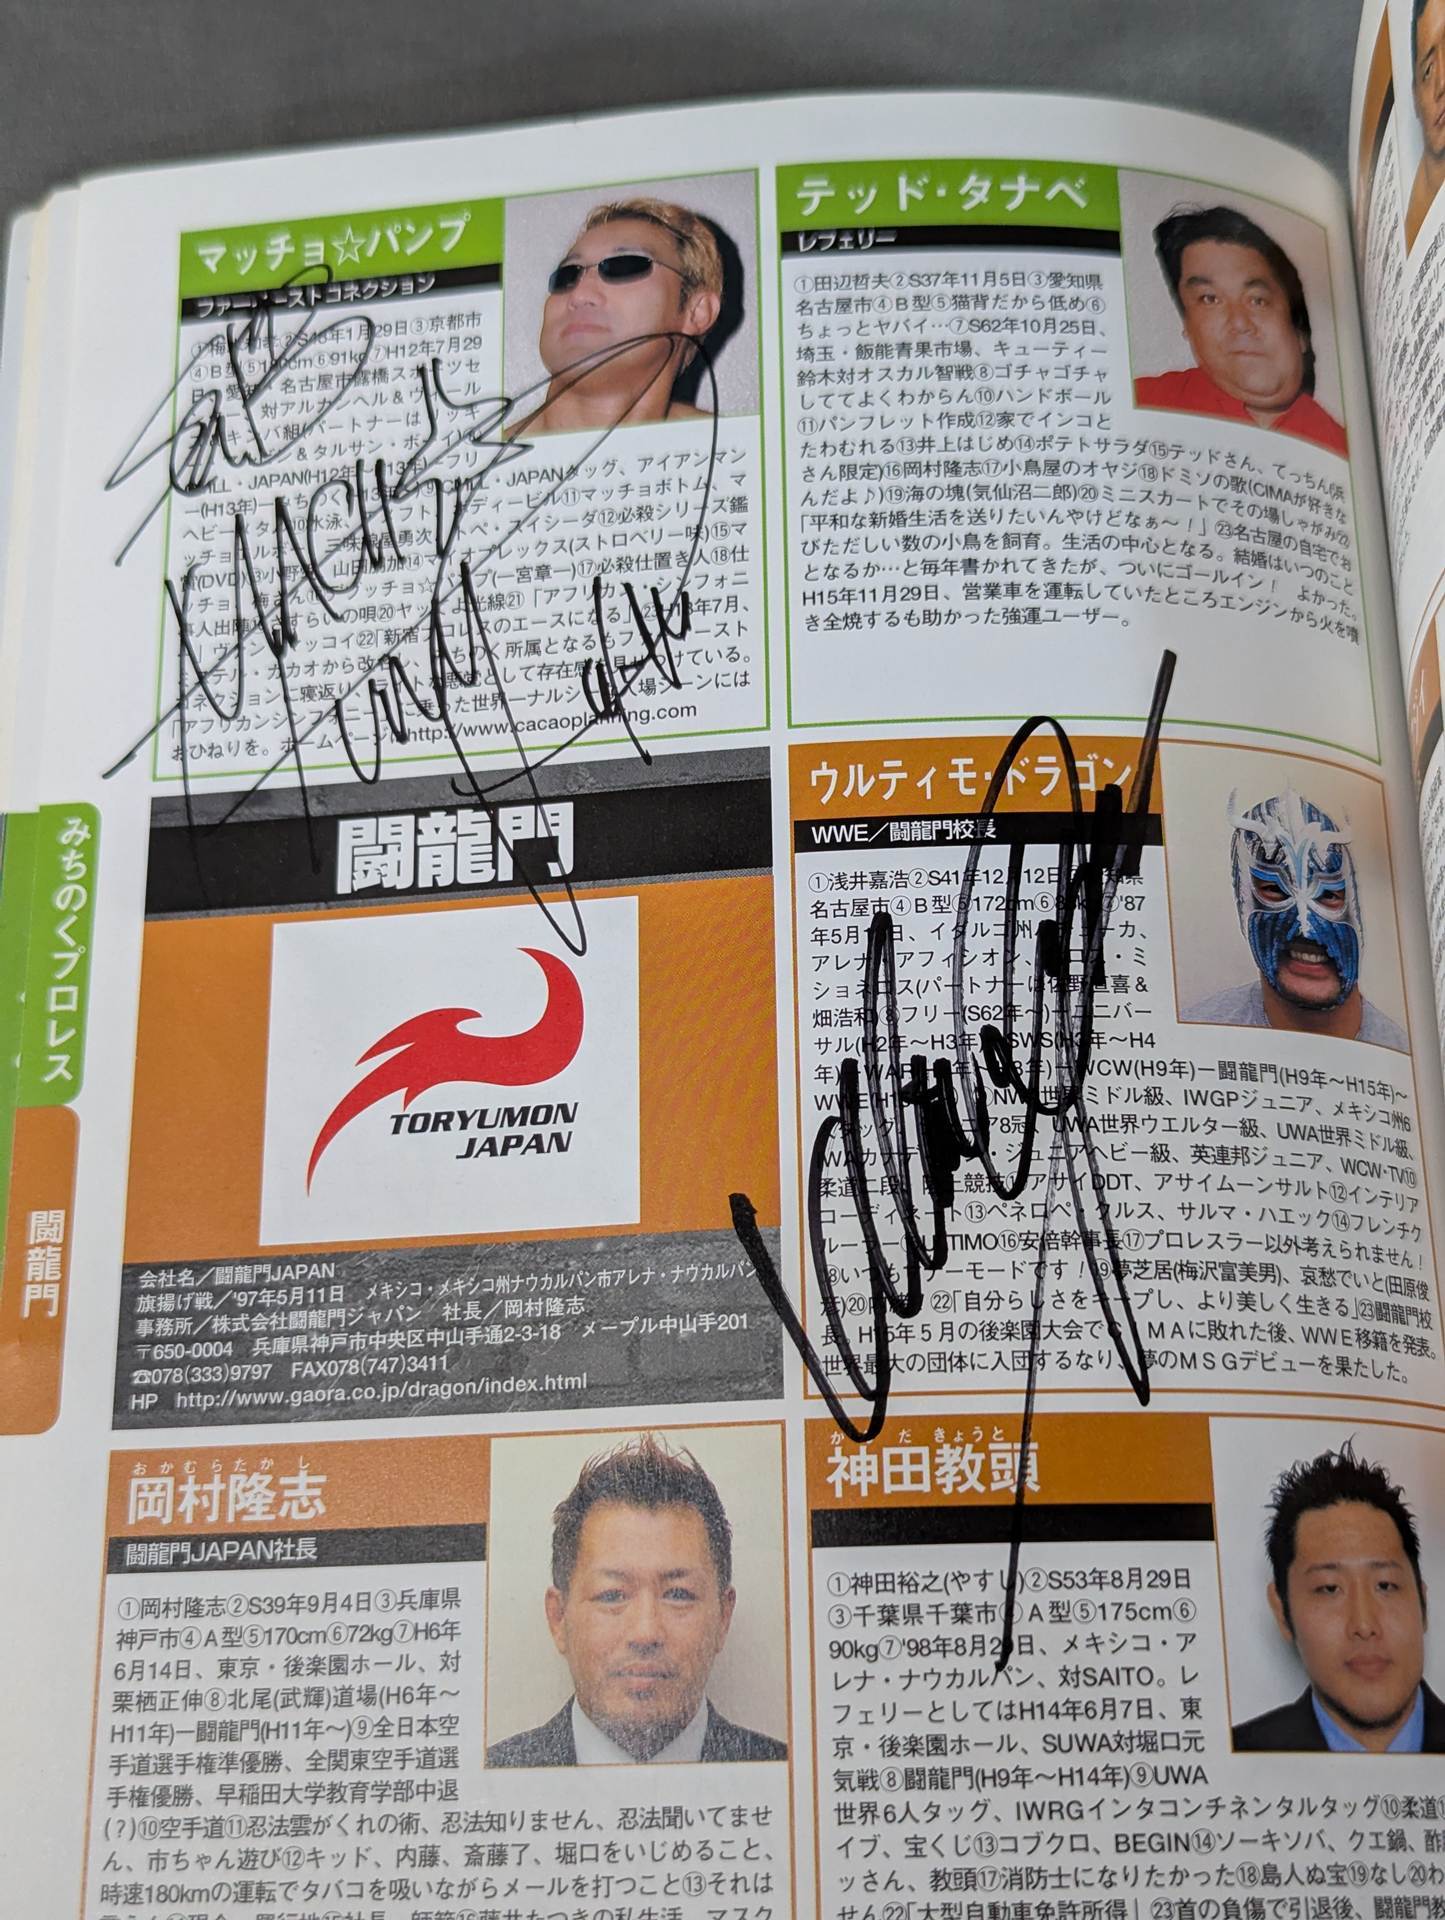 マッチョ☆パンプ
ファーイーストコネクション
②S48年1月29日③京都市
④B型⑤180cm⑥91kg⑦H12年7月29
愛知・名古屋市露橋スポーツセ
対アルカンヘル&ヴィールー
キンバ組(パートナーはリッキー
&タルサン・ボーイ)
CMLL・JAPAN(H12年~H13年)ーフリ
ー(H13年)ーみちのく(H13年~)⑨CMLL・JAPANタッグ、アイアンマン
水泳、 ボディービル⑪マッチョボトム、マ
三味線屋勇次 トペ・スイシーダ⑫必殺シリーズ鑑
賞(DVD)⑬小野 山田 ⑭マイオプレックス(ストロベリー味)⑮マ
(一宮章一)⑰必殺仕置き人⑱仕
事人出陣 さすらいの唄⑳ヤッ よ光線㉑「アフリカン・シンフォニ
ー」ヴァン・マッコイ㉒「新宿プロレスのエースになる」㉓H13年7月、
ミステル・カカオから改名し、みちのく所属となるもファーイースト
コネクションに寝返り、 存在感を見せつけている。
「アフリカンシンフォニー」に乗った世界一ナルシーな入場シーンには
おひねりを。ホームページはhttp://www.cacaoplanning.com
MACHO
PUMP
テッド・タナベ
レフェリー
①田辺哲夫②S37年11月5日③愛知県
名古屋市④B型⑤猫背だから低め⑥
ちょっとヤバイ…⑦S62年10月25日、
埼玉・飯能青果市場、キューティー
鈴木対オスカル智戦⑧ゴチャゴチャ
しててよくわからん⑩ハンドボール
⑪パンフレット作成⑫家でインコと
たわむれる⑬井上はじめ⑭ポテトサラダ⑮テッドさん、てっちん(浜
さん限定)⑯岡村隆志⑰小鳥屋のオヤジ⑱ドミソの歌(CIMAが好きな
んだよ♪)⑲海の塊(気仙沼二郎)⑳ミニスカートでその場しゃがみ㉒
「平和な新婚生活を送りたいんやけどなぁ~!」㉓名古屋の自宅でお
びただしい数の小鳥を飼育。生活の中心となる。結婚はいつのこと
となるか…と毎年書かれてきたが、ついにゴールイン! よかった。
H15年11月29日、営業車を運転していたところエンジンから火を噴
き全焼するも助かった強運ユーザー。
みちのくプロレス
闘龍門
闘龍門
TORYUMON
JAPAN
会社名/闘龍門JAPAN
旗揚げ戦/'97年5月11日 メキシコ・メキシコ州ナウカルパン市アレナ・ナウカルパン
事務所/株式会社闘龍門ジャパン 社長/岡村隆志
〒650-0004 兵庫県神戸市中央区中山手通2-3-18 メープル中山手201
☎078(333)9797 FAX078(747)3411
HP http://www.gaora.co.jp/dragon/index.html
ウルティモ・ドラゴン
WWE/闘龍門校長
①浅井嘉浩②S41年12月12日③愛知県
名古屋市④B型⑤172cm⑥83kg⑦'87
年5月 日、イダルゴ州パチューカ、
アレナ・アフィシオン、 ロス・ミ
ショネロス(パートナーは佐野直喜&
畑浩和)⑧フリー(S62年~)ーユニバー
サル(H2年~H3年)ーSWS(H3年~H4
年)ーWAR( )ーWCW(H9年)ー闘龍門(H9年~H15年)~
WWE(H15 )⑨NWA世界ミドル級、IWGPジュニア、メキシコ州6
人タッグ、ジュニア8冠、UWA世界ウエルター級、UWA世界ミドル級、
WWAカナディアン・ジュニアヘビー級、英連邦ジュニア、WCW・TV⑩
柔道二段、陸上競技⑪アサイDDT、アサイムーンサルト⑫インテリア
コーディネート⑬ペネロペ・クルス、サルマ・ハエック⑭フレンチク
ルーラー⑮ULTIMO⑯安倍幹事長⑰プロレスラー以外考えられません!
⑱いつもマナーモードです!⑲夢芝居(梅沢富美男)、哀愁でいと(田原俊
彦)⑳ ㉒「自分らしさをキープし、より美しく生きる」㉓闘龍門校
長。H15年5月の後楽園大会でCIMAに敗れた後、WWE移籍を発表。
世界最大の団体に入団するなり、夢のMSGデビューを果たした。
おかむらたかし
岡村隆志
闘龍門JAPAN社長
①岡村隆志②S39年9月4日③兵庫県
神戸市④A型⑤170cm⑥72kg⑦H6年
6月14日、東京・後楽園ホール、対
栗栖正伸⑧北尾(武輝)道場(H6年~
H11年)ー闘龍門(H11年~)⑨全日本空
手道選手権準優勝、全関東空手道選
手権優勝、早稲田大学教育学部中退
(?)⑩空手道⑪忍法雲がくれの術、忍法知りません、忍法聞いてませ
ん、市ちゃん遊び⑫キッド、内藤、斎藤了、堀口をいじめること、
時速180kmの運転でタバコを吸いながらメールを打つこと⑬それは
かんだきょうと
神田教頭
①神田裕之(やすし)②S53年8月29日
③千葉県千葉市④A型⑤175cm⑥
90kg⑦'98年8月2 日、メキシコ・ア
レナ・ナウカルパン、対SAITO。レ
フェリーとしてはH14年6月7日、東
京・後楽園ホール、SUWA対堀口元
気戦⑧闘龍門(H9年~H14年)⑨UWA
世界6人タッグ、IWRGインタコンチネンタルタッグ⑩柔道
イブ、宝くじ⑬コブクロ、BEGIN⑭ソーキソバ、クエ鍋、酢
ッさん、教頭⑰消防士になりたかった⑱島人ぬ宝⑲なし⑳わ
せん㉒「大型自動車免許所得」㉓首の負傷で引退後、闘龍門教